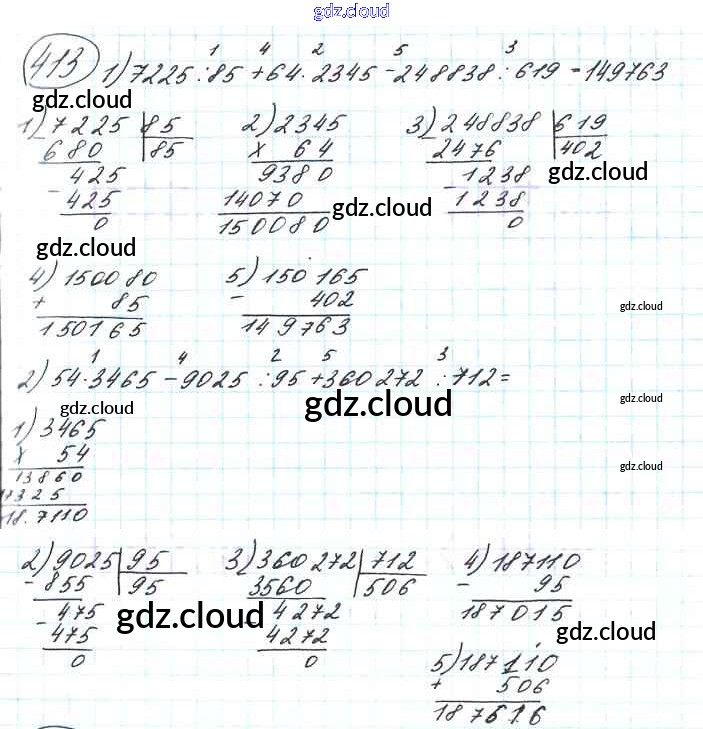 gdz.cloud
1 4 2 5 3
413 1) 7225 : 85 + 64 · 2345 - 248838 : 619 = 149763
gdz.cloud
1) 7225 | 85
- 680 | 85
425
- 425
0
gdz.cloud
2) 2345
x 64
9380
14070
150080
gdz.cloud
3) 248838 | 619
- 2476 | 402
1238
- 1238
0
gdz.cloud
4) 150080
+ 85
150165
5) 150165
- 402
149763
gdz.cloud
1 4 2 5 3
2) 54 · 3465 - 9025 : 95 + 360272 : 712 =
gdz.cloud
gdz.cloud
gdz.cloud
1) 3465
x 54
13860
17325
18.7110
gdz.cloud
2) 9025 | 95
- 855 | 95
475
- 475
0
gdz.cloud
3) 360272 | 712
3560 | 506
4272
- 4272
0
4) 187110
- 95
187015
gdz.cloud
5) 187110
+ 506
187616